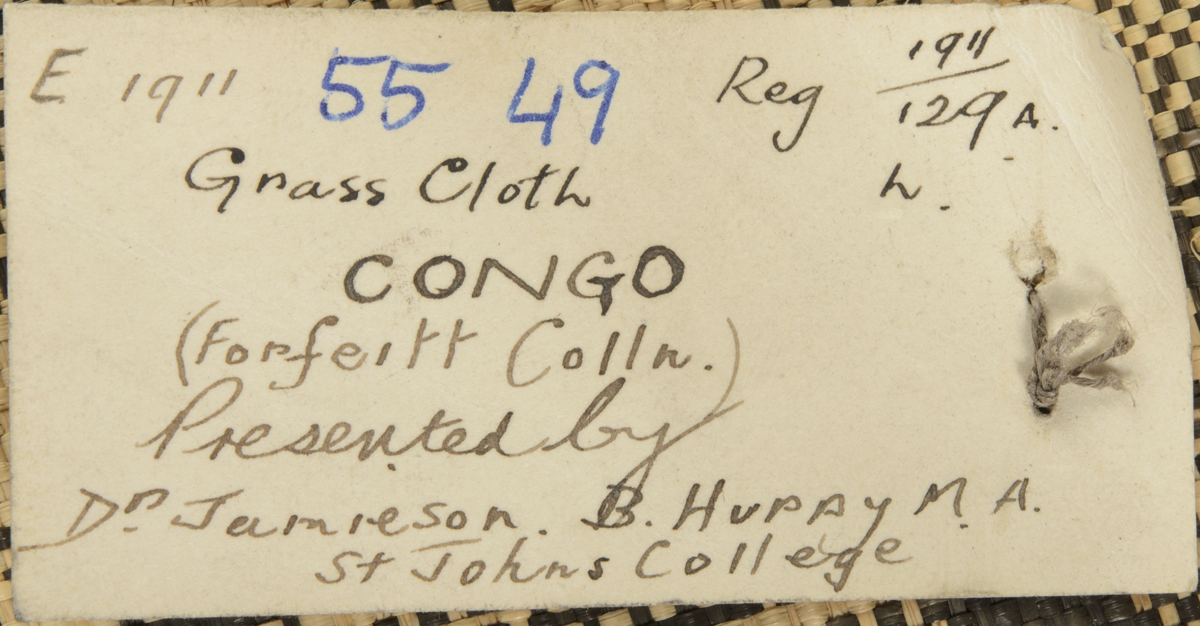 E 1911 55 49 Reg 1911
129 A.
Grass Cloth h.
CONGO
(Forfeitt Colln.)
Presented by
Dr Jamieson. B. Hurry M. A.
St Johns College